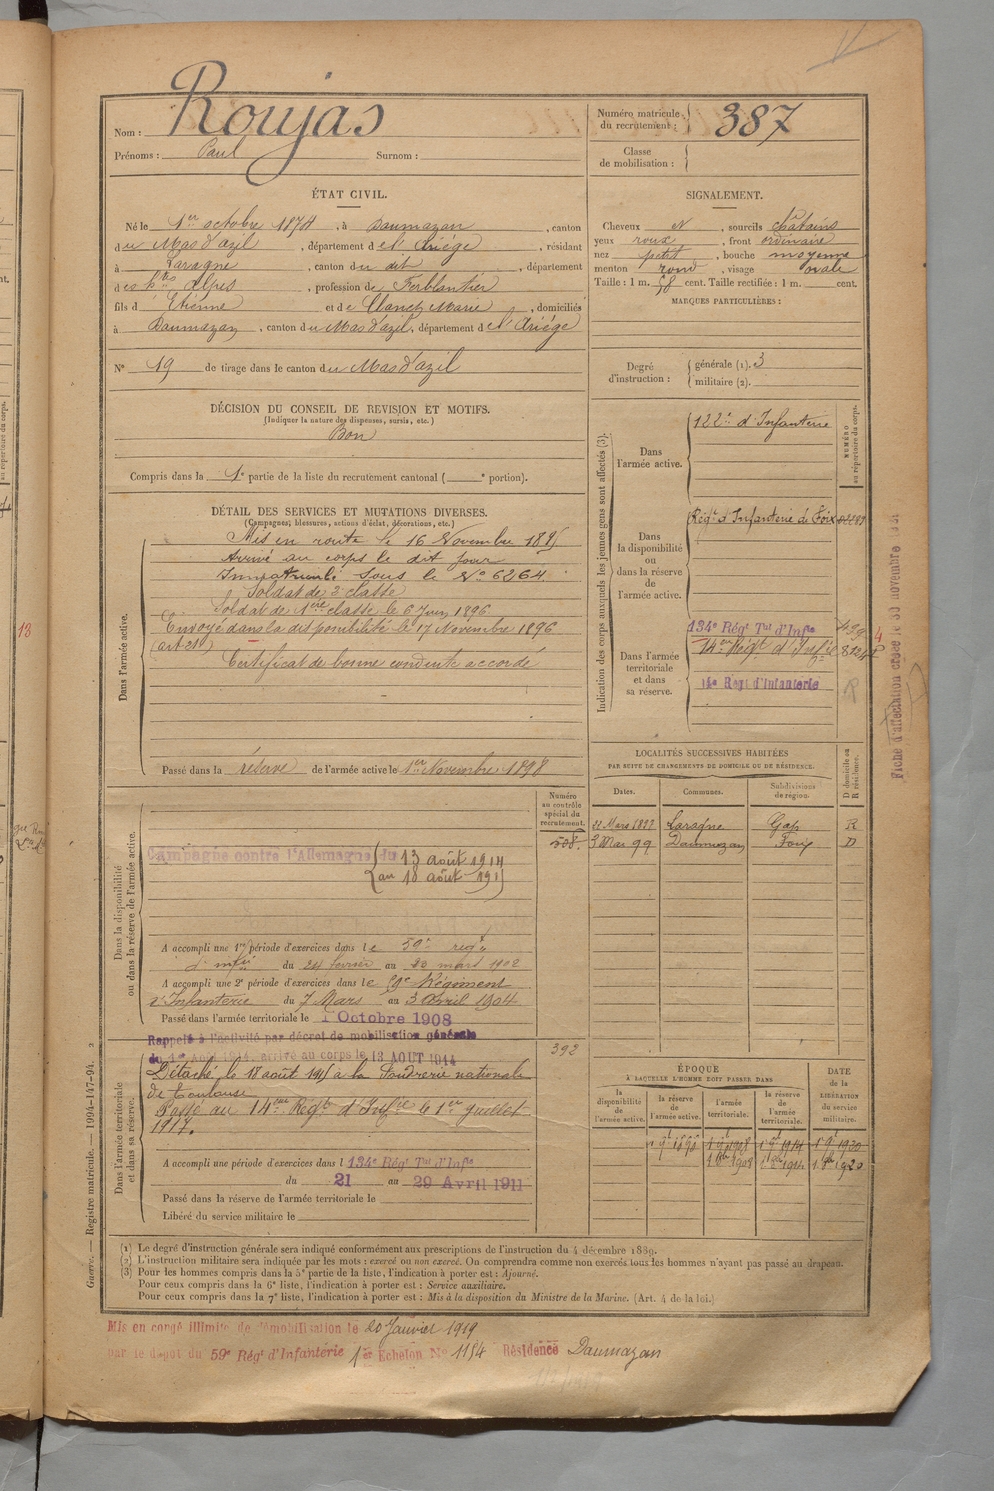 Nom : Roujas
Prénoms : Paul Surnom :
Numéro matricule du recrutement : 387
Classe de mobilisation :
ÉTAT CIVIL.
Né le 1er octobre 1874, à Daumazan, canton
du Mas d'azil, département de l'Ariége, résidant
à Laragne, canton du dit, département
des htes Alpes, profession de Ferblantier
fils d Etienne et de Clanet Marie, domiciliés
à Daumazan, canton du Mas d'azil, département de l'Ariége
N° 19 de tirage dans le canton du Mas d'azil
DÉCISION DU CONSEIL DE REVISION ET MOTIFS.
(Indiquer la nature des dispenses, sursis, etc.)
Bon
Compris dans la 1e partie de la liste du recrutement cantonal ( e portion).
SIGNALEMENT.
Cheveux N, sourcils châtains
yeux roux, front ordinaire
nez petit, bouche moyenne
menton rond, visage ovale
Taille : 1 m. 58 cent. Taille rectifiée : 1 m. cent.
MARQUES PARTICULIÈRES :
Degré d'instruction : générale (1). 3
militaire (2).
DÉTAIL DES SERVICES ET MUTATIONS DIVERSES.
(Campagnes, blessures, actions d'éclat, décorations, etc.)
Dans l'armée active.
Mis en route le 16 Novembre 1895
Arrivé au corps le dit jour
Immatriculé sous le No 6264
Soldat de 2 classe
Soldat de 1ère classe le 6 Juin 1896
Envoyé dans la disponibilité le 17 Novembre 1896
(art 21)
Certificat de bonne conduite accordé
Passé dans la réserve de l'armée active le 1er Novembre 1898
Indication des corps auxquels les jeunes gens sont affectés (3).
NUMÉRO au répertoire du corps.
Dans l'armée active. 122e d'Infanterie
Dans la disponibilité ou dans la réserve de l'armée active. Régt d'Infanterie de Foix
Dans l'armée territoriale et dans sa réserve.
134e Régt Tal d'Infie
14eme Régt d'Infie
14e Régt d'Infanterie
Fiche d'affectation créée le 30 novembre
LOCALITÉS SUCCESSIVES HABITÉES
PAR SUITE DE CHANGEMENTS DE DOMICILE OU DE RÉSIDENCE.
Dates. Communes. Subdivisions de région. D domicile ou R résidence.
22 Mars 1897 Laragne Gap R
3 Mai 99 Daumazan Foix D
Numéro au contrôle spécial du recrutement.
508.
Dans la disponibilité ou dans la réserve de l'armée active.
Campagne contre l'Allemagne du 13 août 1914
au 18 août 1915
A accompli une 1re période d'exercices dans le 59e regt
d'infie du 24 février au 23 mars 1902
A accompli une 2e période d'exercices dans le 59e Régiment
d'Infanterie du 7 Mars au 3 Avril 1904
Passé dans l'armée territoriale le 1 Octobre 1908
Rappelé à l'activité par décret de mobilisation générale
du 1er Août 1914, arrivé au corps le 13 AOUT 1914
392
Dans l'armée territoriale et dans sa réserve.
Détaché le 18 août 1915 à la Poudrerie nationale
de Toulouse
Passé au 14eme Régt d'Infie le 1er juillet
1917.
A accompli une période d'exercices dans l 134e Régt Tal d'Infie
du 21 au 29 Avril 1911
Passé dans la réserve de l'armée territoriale le
Libéré du service militaire le
ÉPOQUE
A LAQUELLE L'HOMME DOIT PASSER DANS
la disponibilité de l'armée active. la réserve de l'armée active. l'armée territoriale. la réserve de l'armée territoriale.
DATE de la LIBÉRATION du service militaire.
1 9e 1898 1 9e 1908 1 9e 1914 1 9e 1920
1 8bre 1908 1 8bre 1914 1 8bre 1920
(1) Le degré d'instruction générale sera indiqué conformément aux prescriptions de l'instruction du 4 décembre 1889.
(2) L'instruction militaire sera indiquée par les mots : exercé ou non exercé. On comprendra comme non exercés tous les hommes n'ayant pas passé au drapeau.
(3) Pour les hommes compris dans la 5e partie de la liste, l'indication à porter est : Ajourné.
Pour ceux compris dans la 6e liste, l'indication à porter est : Service auxiliaire.
Pour ceux compris dans la 7e liste, l'indication à porter est : Mis à la disposition du Ministre de la Marine. (Art. 4 de la loi.)
Guerre. — Registre matricule. — 1994-147-94. 2
Mis en congé illimité de démobilisation le 20 Janvier 1919
par le dépot du 59e Régt d'Infanterie 1er Echelon No 1154 Résidence Daumazan
13